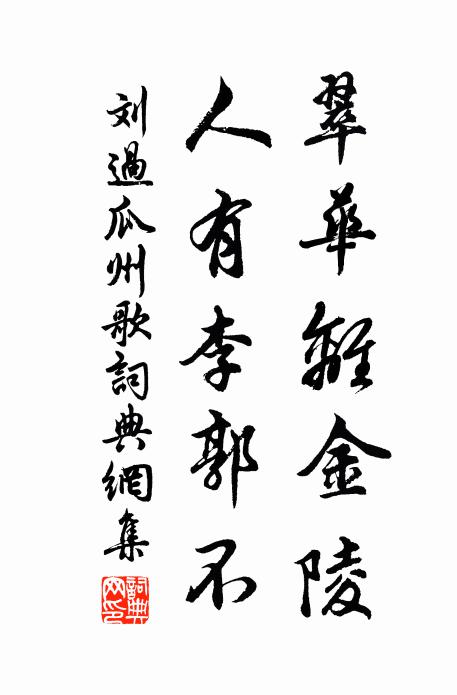 翠華離金陵
人有李郭不
刘過瓜州歌詞典網集
詞典網印